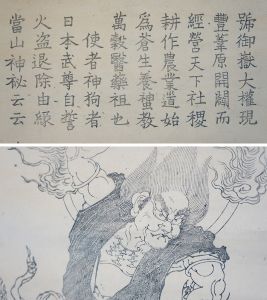 號御嶽大權現
豐葦原開闢而
經營天下社稷
耕作農業道始
為蒼生養蠶教
萬穀醫藥祖也
使者神狗者
日本武尊自誓
火盗退除由緣
當山神秘云云